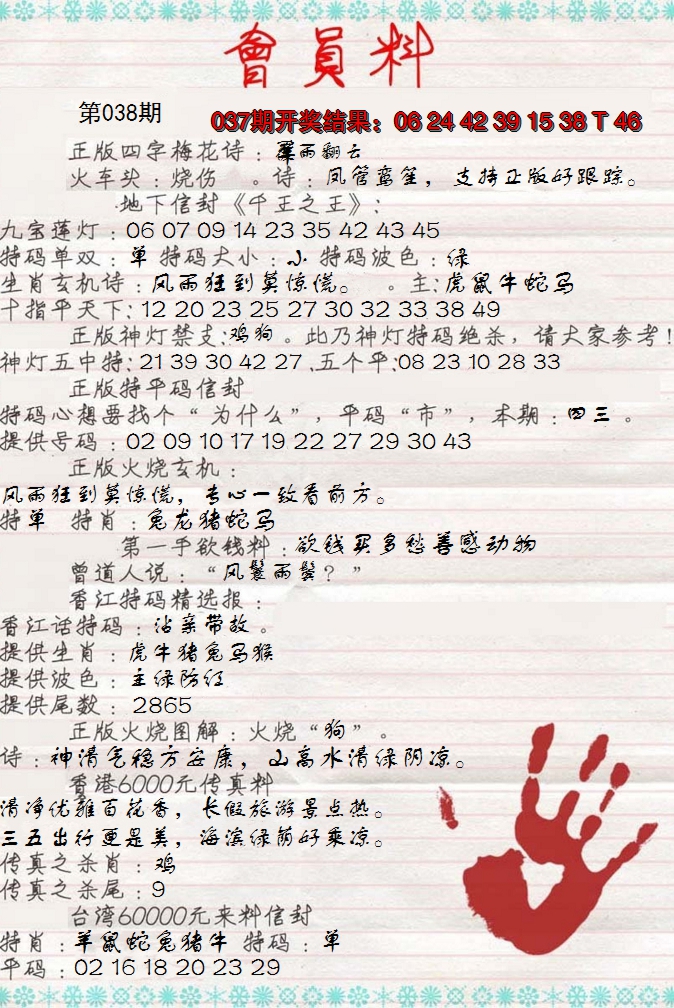 會員料
第038期
037期开奖结果：06 24 42 39 15 38 T 46
正版四字梅花诗：雨翻云
火车头：烧伤 。诗：凤管鸾笙，支持正版好跟踪。
地下信封《千王之王》：
九宝莲灯：06 07 09 14 23 35 42 43 45
特码单双：单 特码大小：小 特码波色：绿
生肖玄机诗：风雨狂到莫惊慌。 。主：虎鼠牛蛇马
十指平天下：12 20 23 25 27 30 32 33 38 49
正版神灯禁支：鸡狗。此乃神灯特码绝杀，请大家参考！
神灯五中特：21 39 30 42 27 .五个平：08 23 10 28 33
正版特平码信封
特码心想要找个“为什么”，平码“市”，本期：四三。
提供号码：02 09 10 17 19 22 27 29 30 43
正版火烧玄机：
风雨狂到莫惊慌，专心一致看前方。
特单 特肖：兔龙猪蛇马
第一手欲钱料：欲钱买多愁善感动物
曾道人说：“风鬟雨鬓？”
香江特码精选报：
香江话特码：沾亲带故。
提供生肖：虎牛猪兔马猴
提供波色：主绿防红
提供尾数：2865
正版火烧图解：火烧“狗”。
诗：神清气稳方安康，山高水清绿阴凉。
香港6000元传真料
清净优雅百花香，长假旅游景点热。
三五出行更是美，海滨绿荫好乘凉。
传真之杀肖：鸡
传真之杀尾：9
台湾60000元来料信封
特肖：羊鼠蛇兔猪牛 特码：单
平码：02 16 18 20 23 29